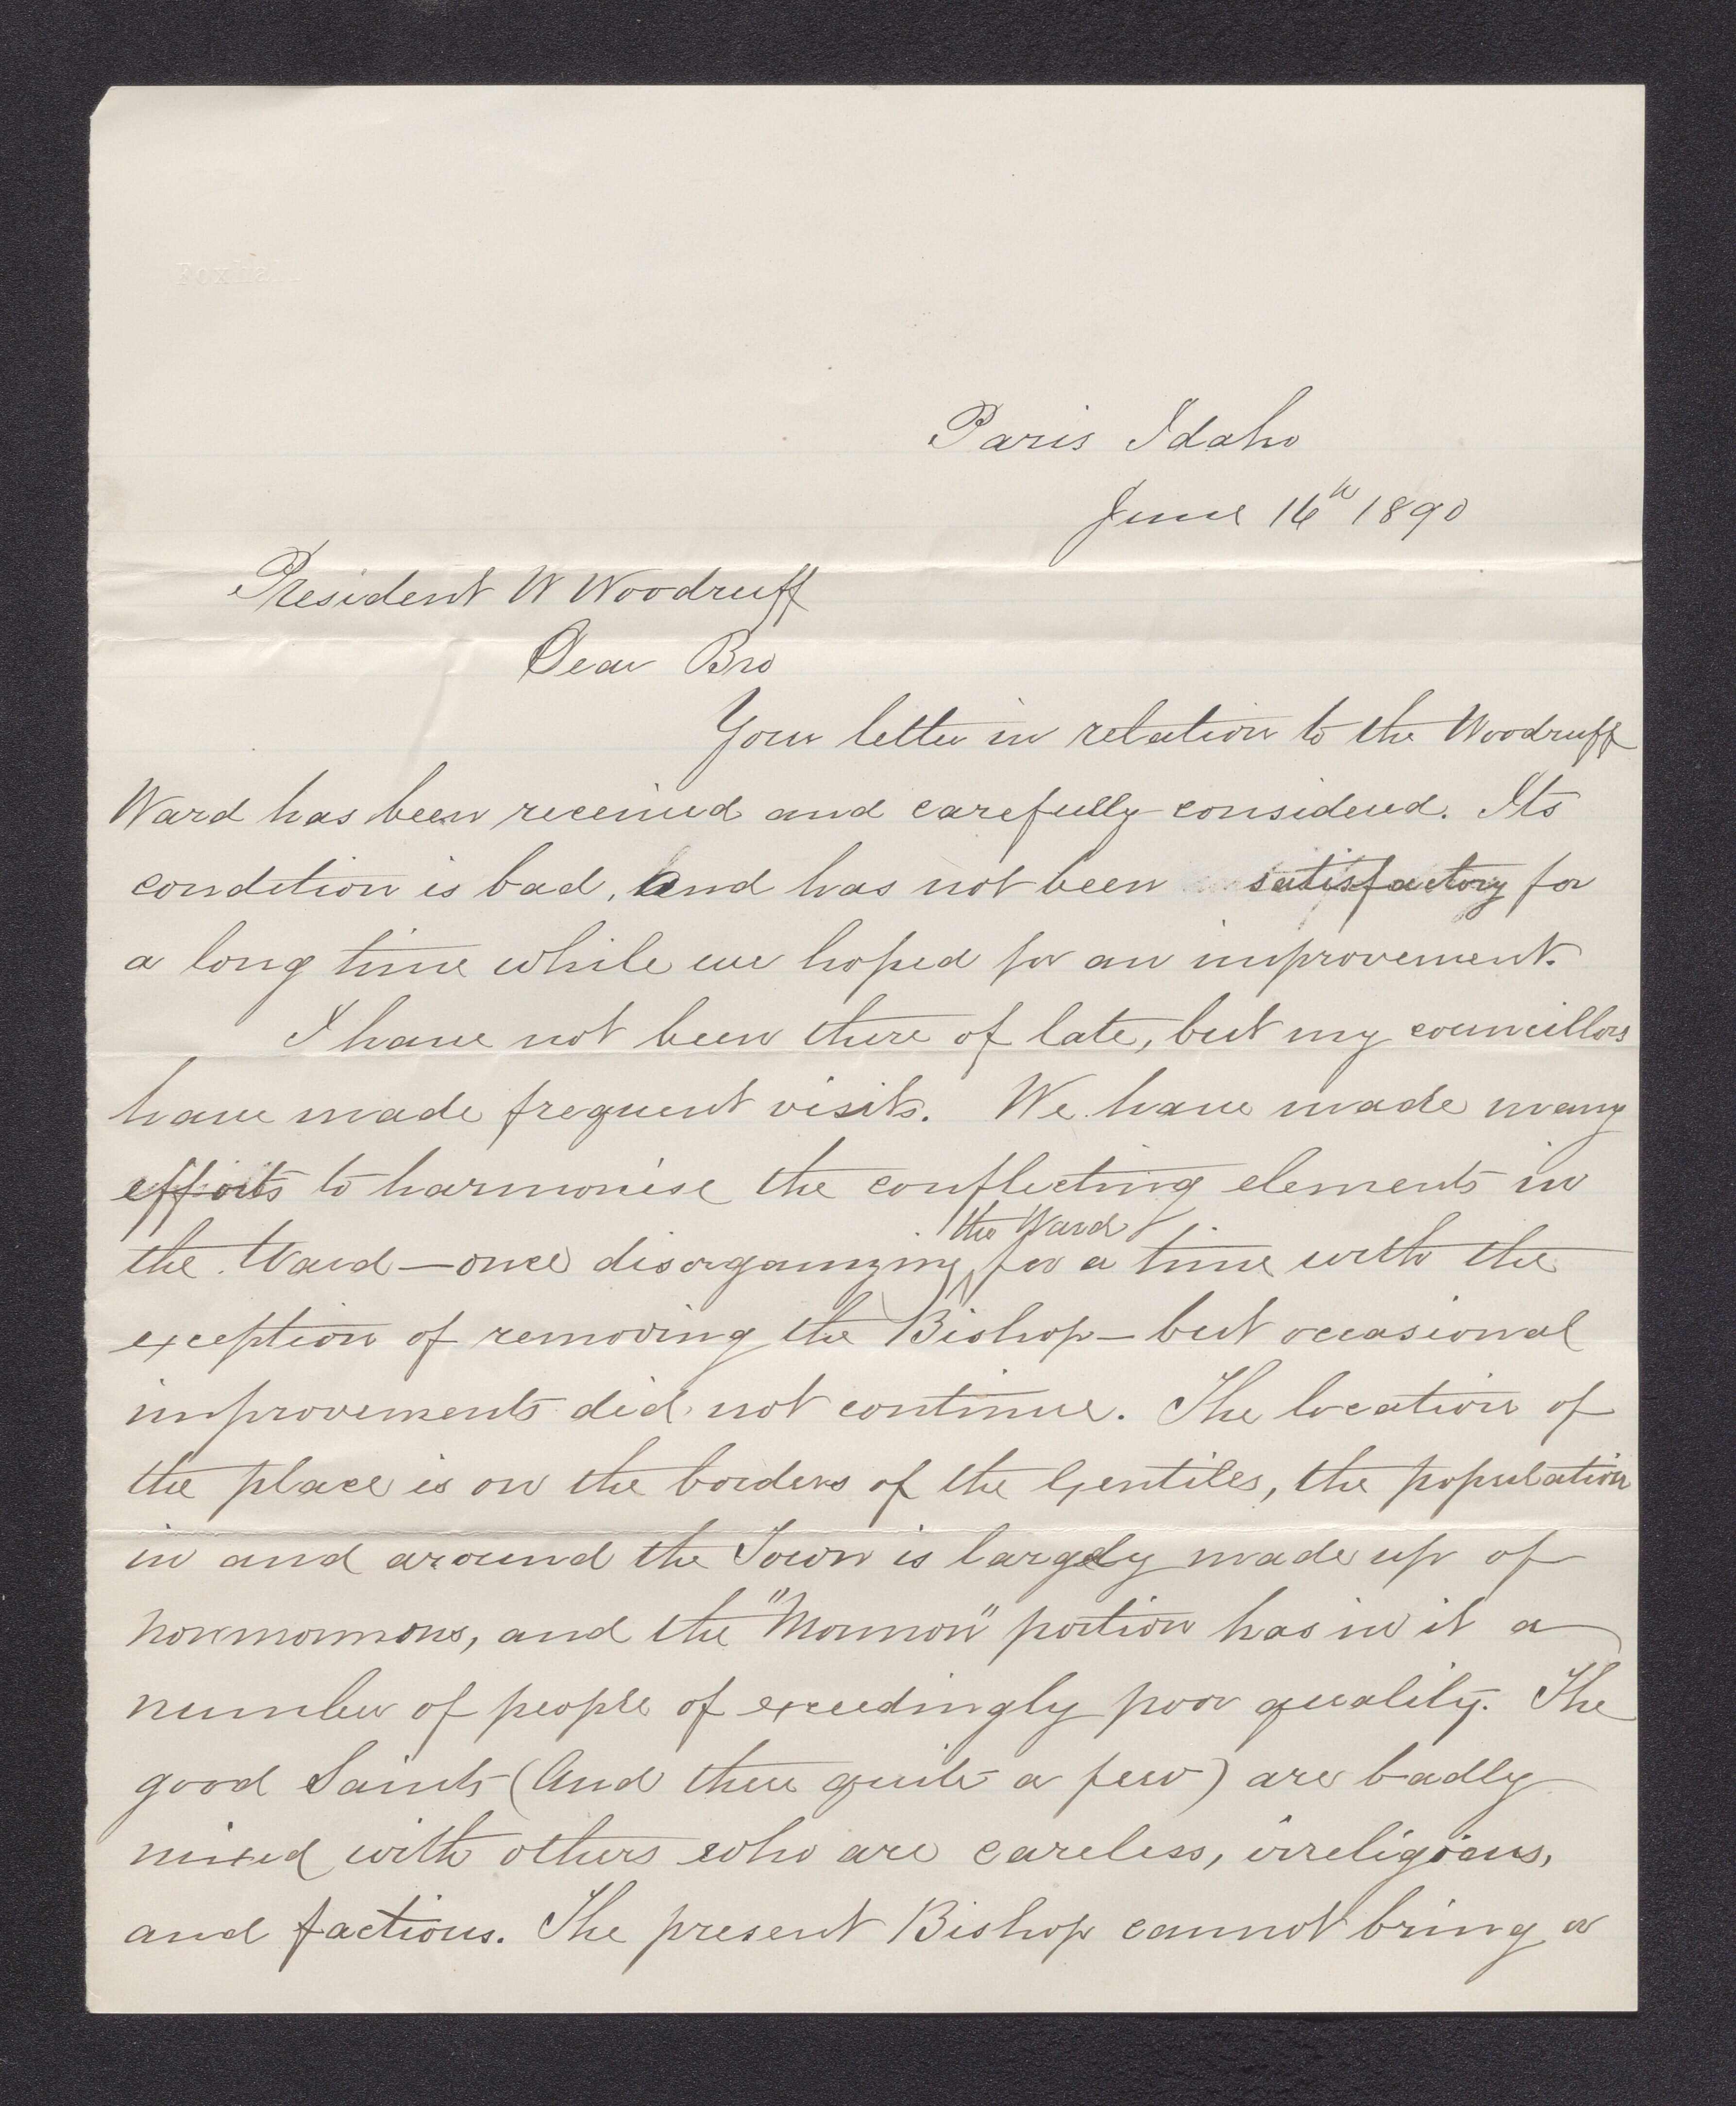 Paris Idaho
June 16th 1890
President W Woodruff
Dear Bro
Your letter in relation to the Woodruff
Ward has been received and carefully considered. Its
condition is bad, and has not been satisfactory for
a long time while we hoped for an improvement.
I have not been there of late, but my councillors
have made frequent visits. We have made many
efforts to harmonise the conflecting elements in
the Ward
the Ward—once disorganizing for a time with the
exception of removing the Bishop—but occasional
improvements did not continue. The location of
the place is on the borders of the Gentiles, the population
in and around the Town is largely made up of
nonmormons, and the "Mormon" portion has in it a
number of people of exceedingly poor quality. The
good Saints (And there quite a few) are badly
mixed with others who are careless, irreligious,
and factious. The present Bishop cannot bring a